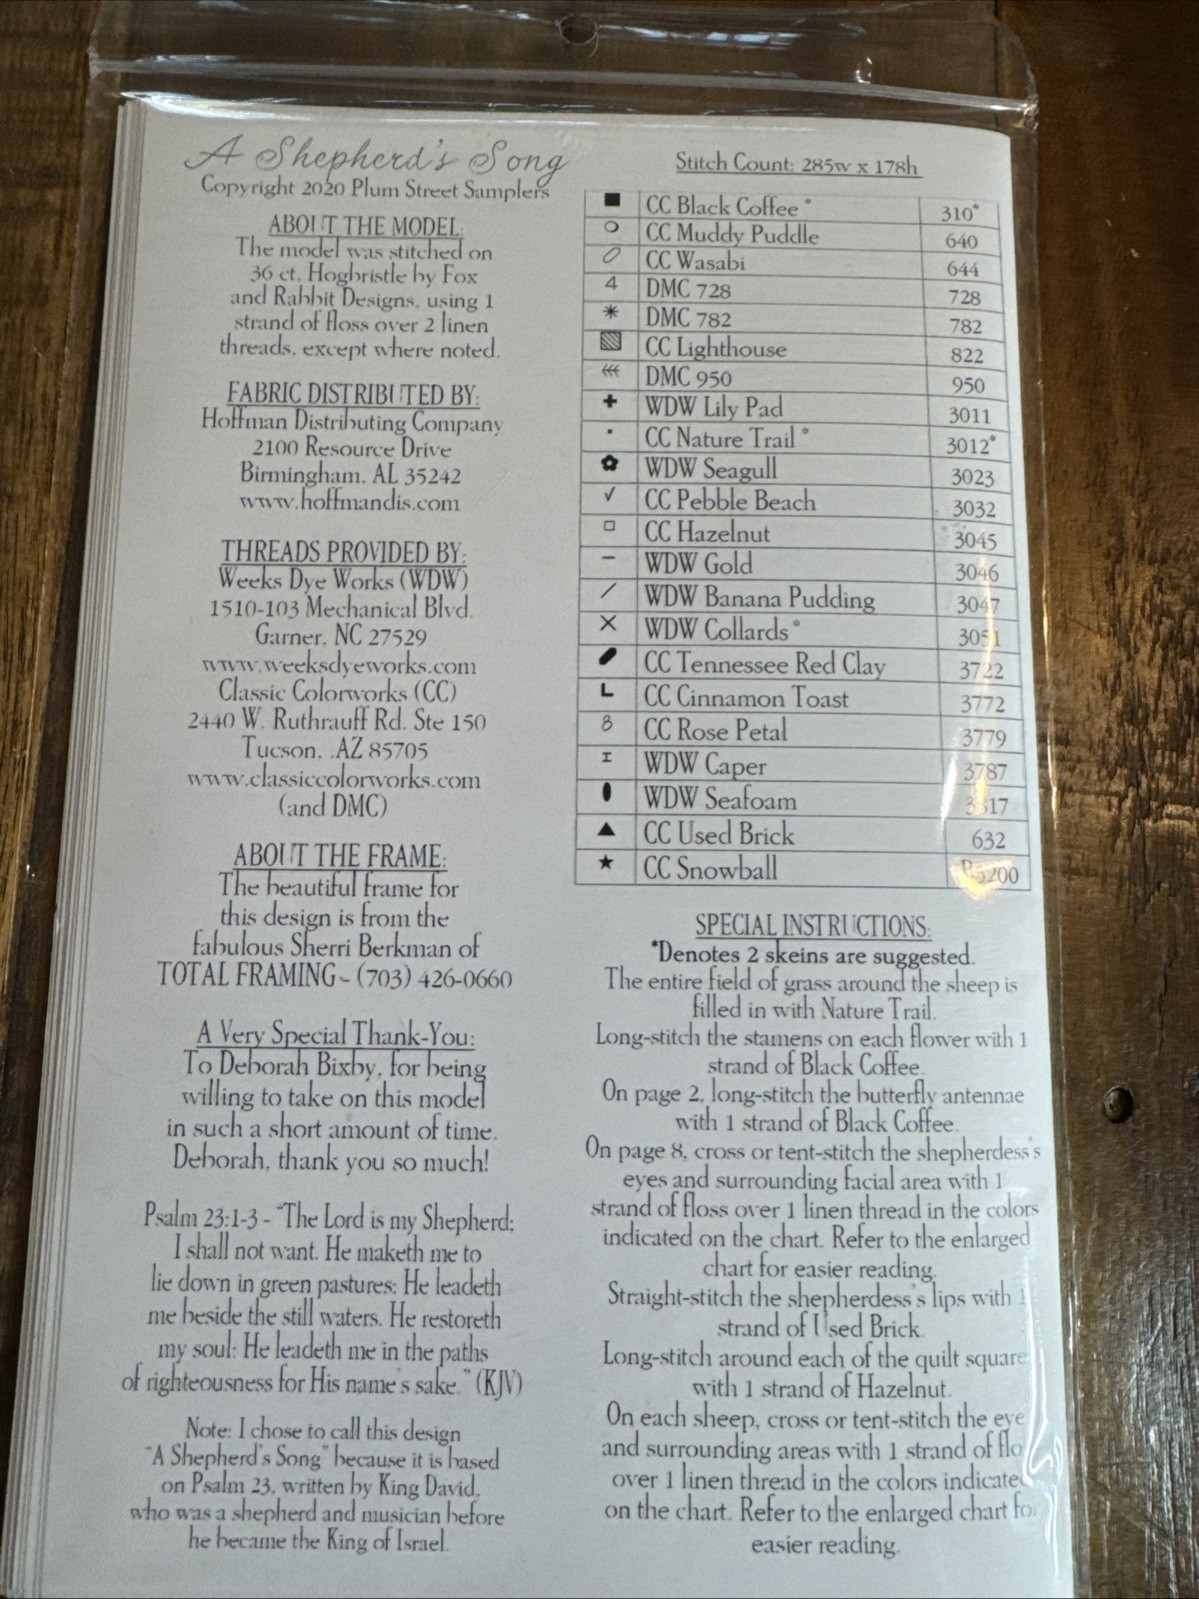 A Shepherd's Song
Copyright 2020 Plum Street Samplers
ABOUT THE MODEL:
The model was stitched on
36 ct. Hogbristle by Fox
and Rabbit Designs, using 1
strand of floss over 2 linen
threads, except where noted.
FABRIC DISTRIBUTED BY:
Hoffman Distributing Company
2100 Resource Drive
Birmingham, AL 35242
www.hoffmandis.com
THREADS PROVIDED BY:
Weeks Dye Works (WDW)
1510-103 Mechanical Blvd.
Garner, NC 27529
www.weeksdyeworks.com
Classic Colorworks (CC)
2440 W. Ruthrauff Rd. Ste 150
Tucson, .AZ 85705
www.classiccolorworks.com
(and DMC)
ABOUT THE FRAME:
The beautiful frame for
this design is from the
fabulous Sherri Berkman of
TOTAL FRAMING ~ (703) 426-0660
A Very Special Thank-You:
To Deborah Bixby, for being
willing to take on this model
in such a short amount of time.
Deborah, thank you so much!
Psalm 23:1-3 - "The Lord is my Shepherd;
I shall not want. He maketh me to
lie down in green pastures: He leadeth
me beside the still waters. He restoreth
my soul: He leadeth me in the paths
of righteousness for His name's sake." (KJV)
Note: I chose to call this design
"A Shepherd's Song" because it is based
on Psalm 23, written by King David,
who was a shepherd and musician before
he became the King of Israel.
Stitch Count: 285w x 178h
■ CC Black Coffee * 310*
CC Muddy Puddle 640
CC Wasabi 644
4 DMC 728 728
* DMC 782 782
CC Lighthouse 822
DMC 950 950
+ WDW Lily Pad 3011
• CC Nature Trail * 3012*
WDW Seagull 3023
✓ CC Pebble Beach 3032
□ CC Hazelnut 3045
– WDW Gold 3046
/ WDW Banana Pudding 3047
X WDW Collards * 3051
CC Tennessee Red Clay 3722
L CC Cinnamon Toast 3772
8 CC Rose Petal 3779
I WDW Caper 3787
WDW Seafoam
▲ CC Used Brick 632
★ CC Snowball B5200
SPECIAL INSTRUCTIONS:
*Denotes 2 skeins are suggested.
The entire field of grass around the sheep is
filled in with Nature Trail.
Long-stitch the stamens on each flower with 1
strand of Black Coffee.
On page 2, long-stitch the butterfly antennae
with 1 strand of Black Coffee.
On page 8, cross or tent-stitch the shepherdess's
eyes and surrounding facial area with 1
strand of floss over 1 linen thread in the colors
indicated on the chart. Refer to the enlarged
chart for easier reading.
Straight-stitch the shepherdess's lips with 1
strand of Used Brick.
Long-stitch around each of the quilt square
with 1 strand of Hazelnut.
On each sheep, cross or tent-stitch the eye
and surrounding areas with 1 strand of flo
over 1 linen thread in the colors indicated
on the chart. Refer to the enlarged chart for
easier reading.